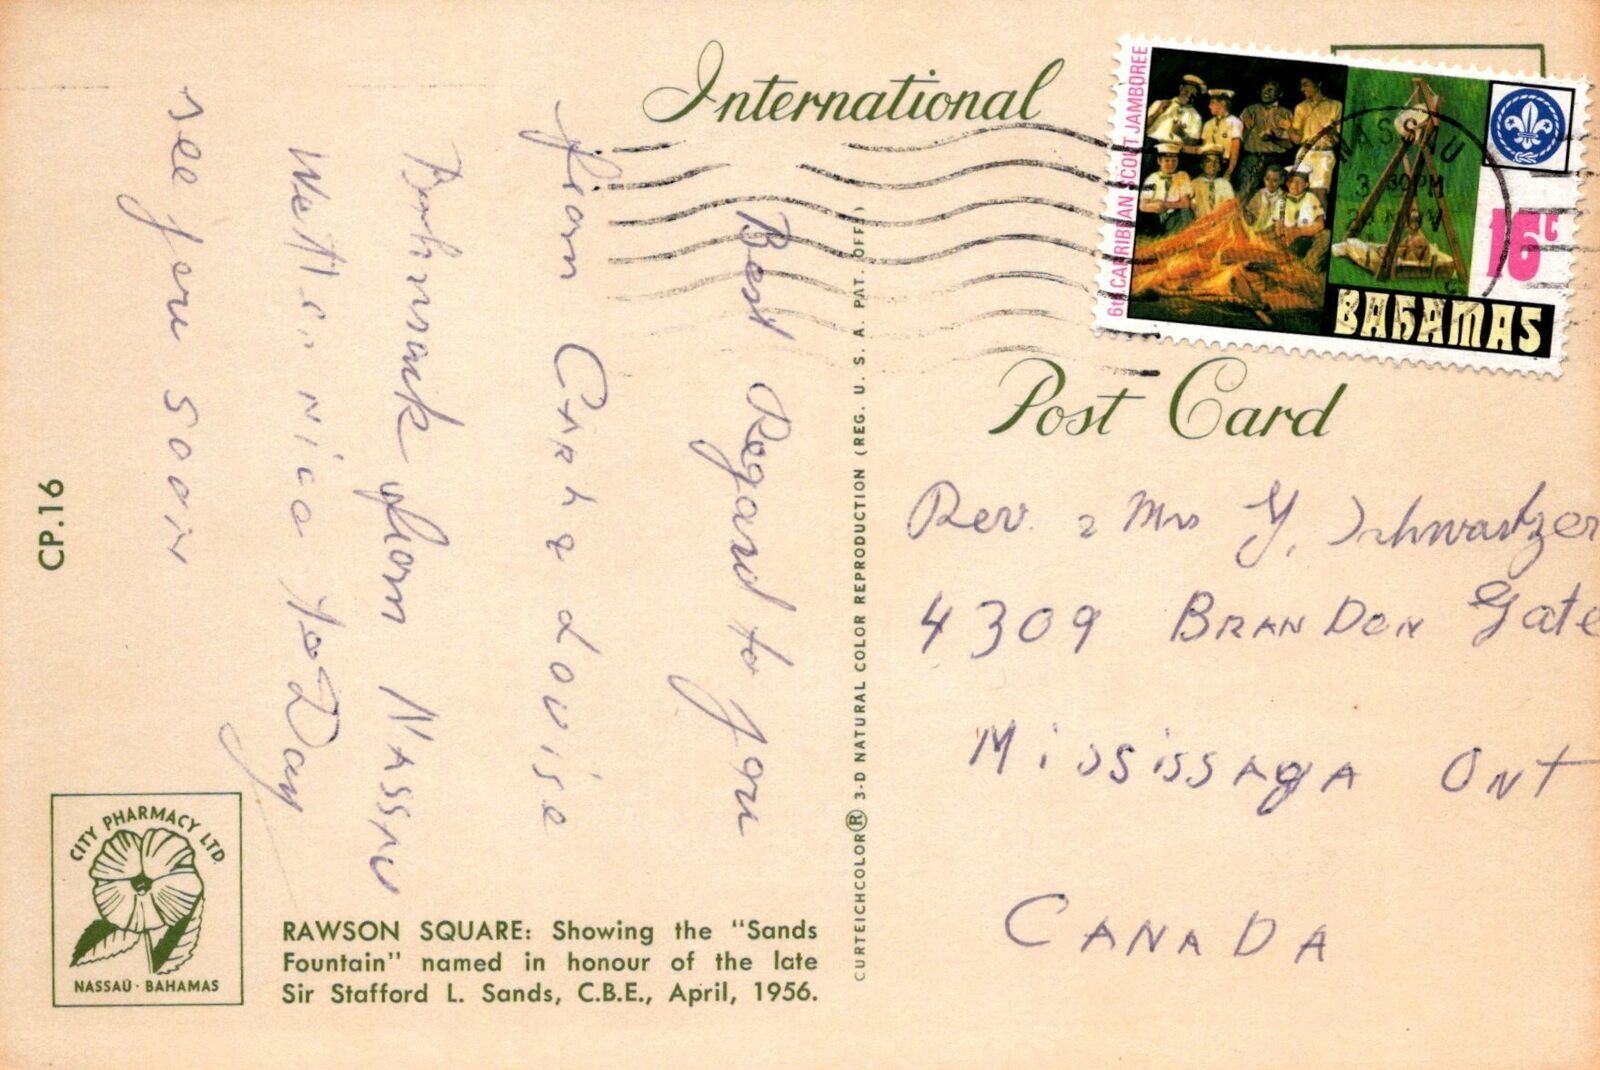 International
Post Card
6th CARRIBEAN SCOUT JAMBOREE
NASSAU
3 30PM
NOV
16c
BAHAMAS
Best Regard to you
from CARL & Louise
from NASSAU
nice to Day
see you soon
Rev. & Mrs Y. Schwartzer
4309 BRANDON Gate
MississAgA Ont
CANADA
CP.16
CITY PHARMACY LTD.
NASSAU · BAHAMAS
RAWSON SQUARE: Showing the "Sands
Fountain" named in honour of the late
Sir Stafford L. Sands, C.B.E., April, 1956.
CURTEICHCOLOR® 3-D NATURAL COLOR REPRODUCTION (REG. U. S. A. PAT. OFF)